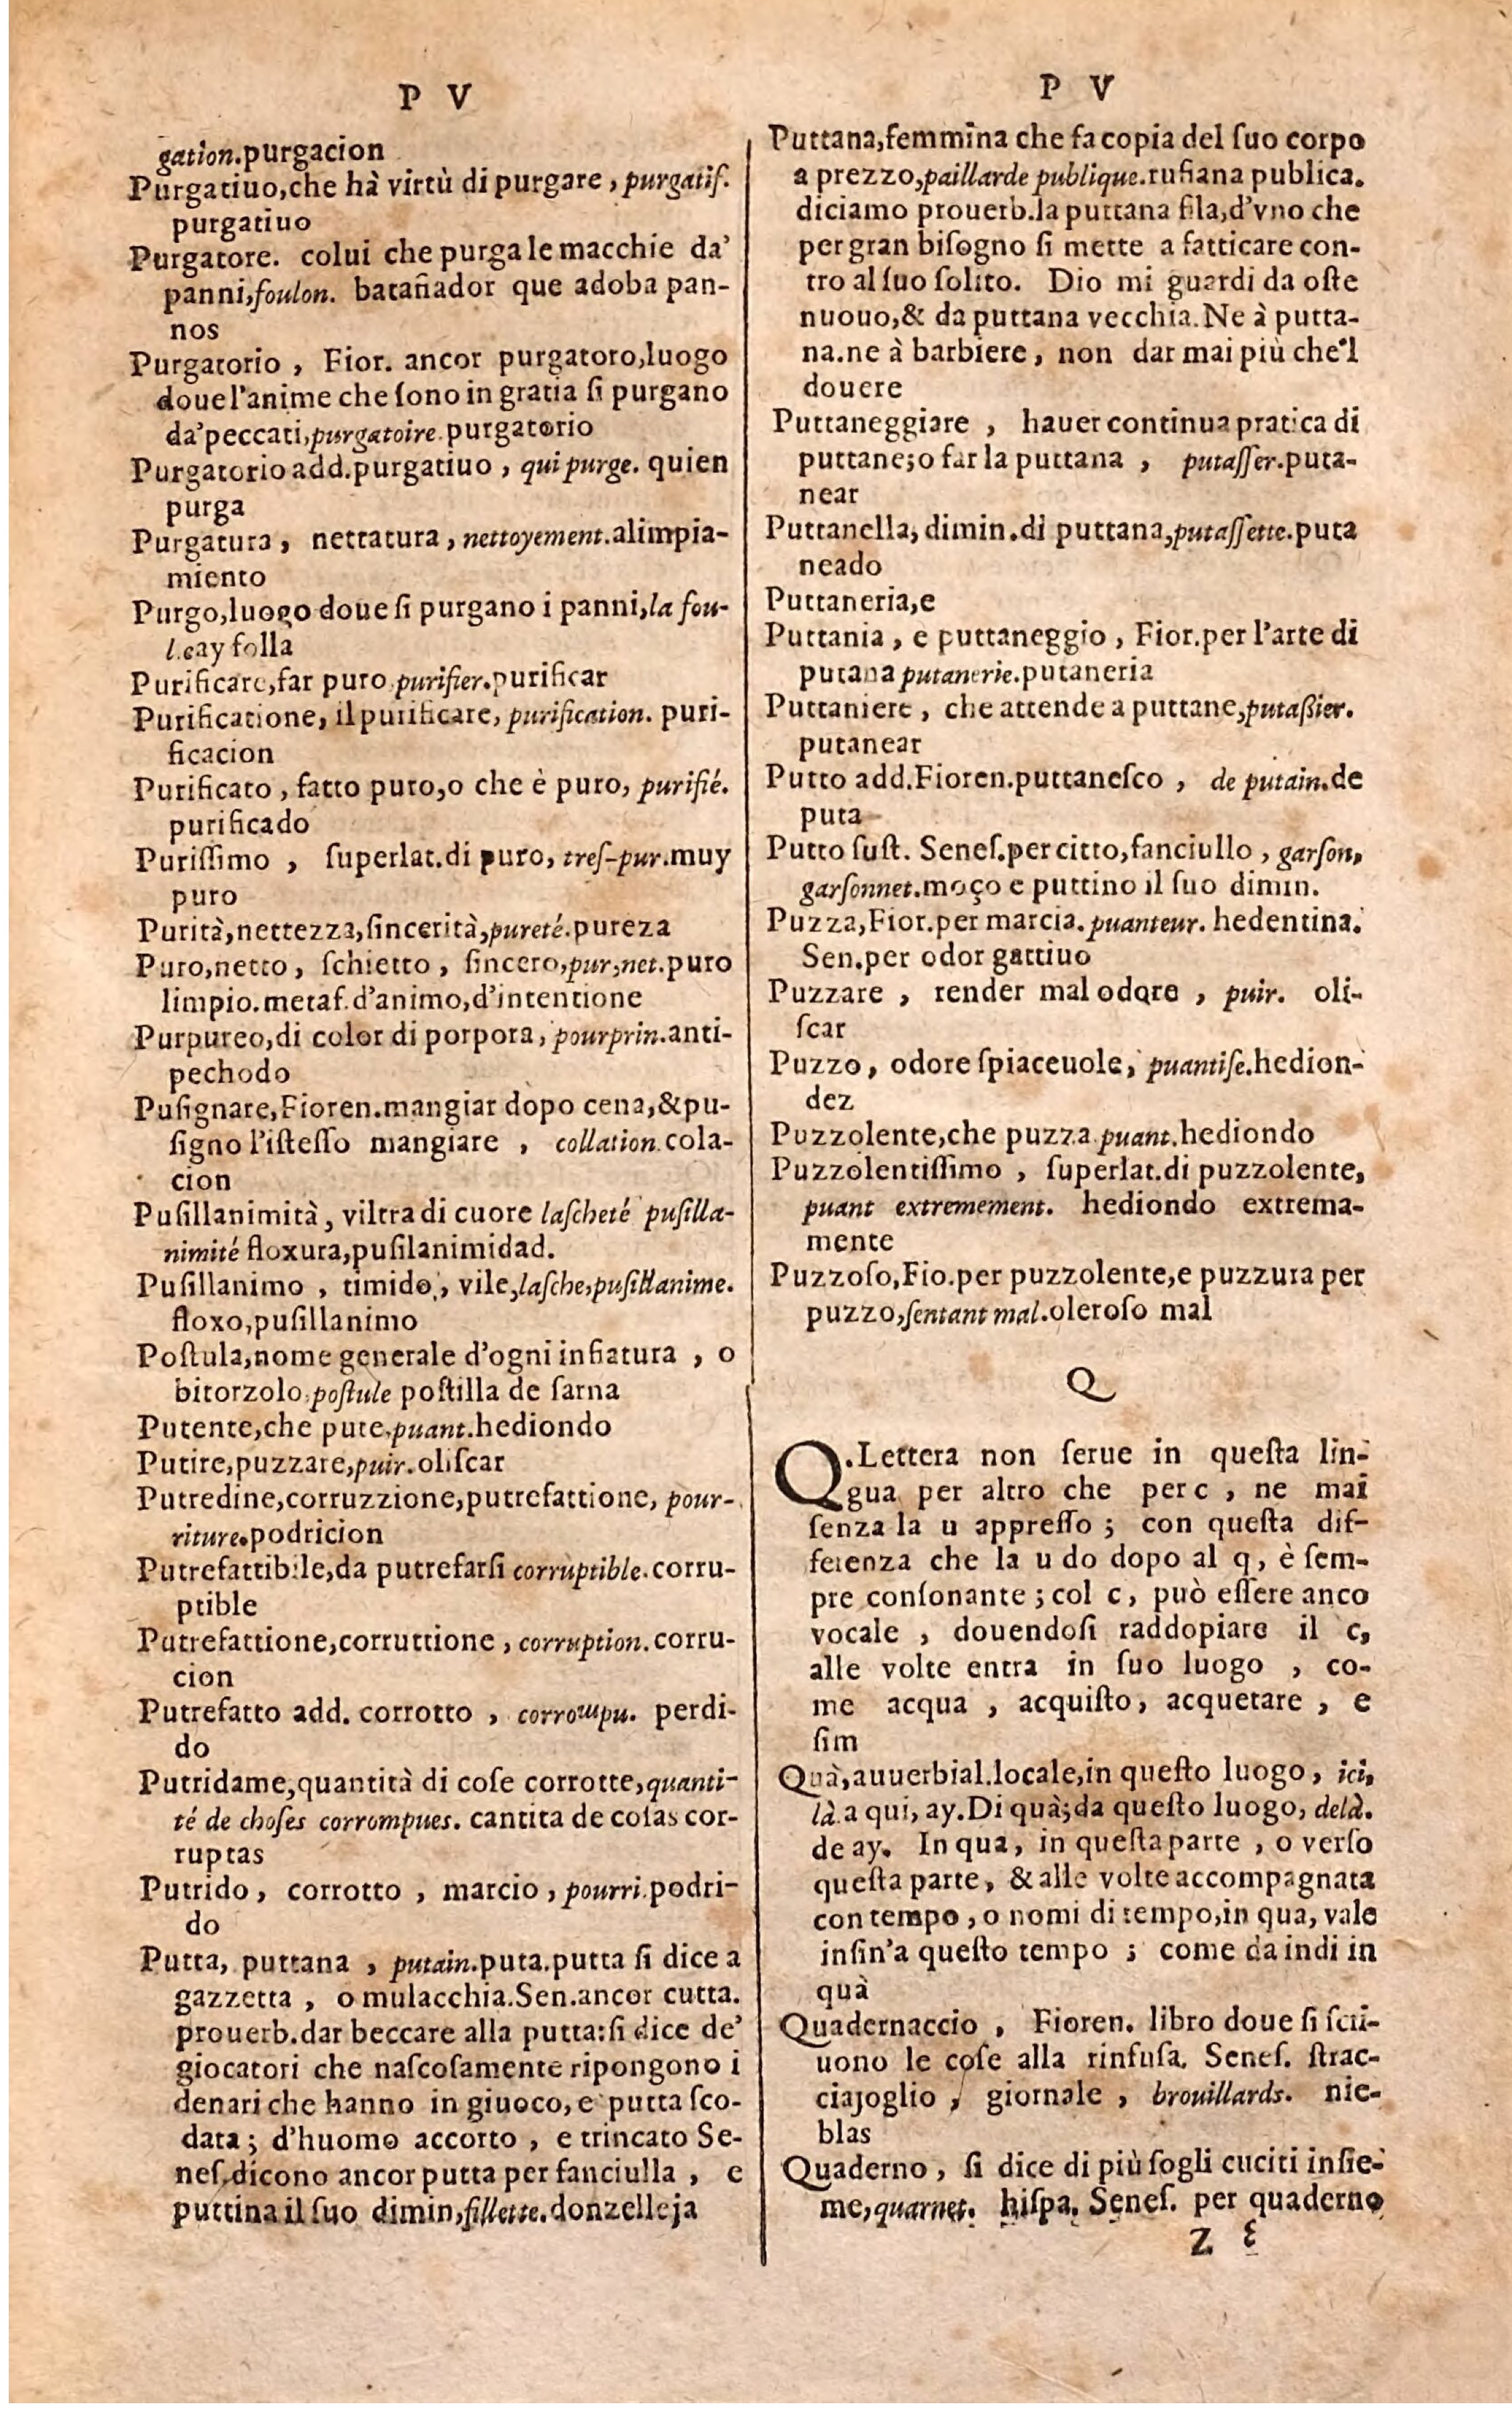 P V
gation.purgacion
Purgatiuo,che hà virtù di purgare , purgatif.
purgatiuo
Purgatore. colui che purga le macchie da'
panni,foulon. batañador que adoba pan-
nos
Purgatorio , Fior. ancor purgatoro,luogo
doue l'anime che ſono in gratia ſi purgano
da'peccati,purgatoire.purgatorio
Purgatorio add.purgatiuo , qui purge. quien
purga
Purgatura , nettatura , nettoyement.alimpia-
miento
Purgo,luogo doue ſi purgano i panni,la fou-
l.eay folla
Purificare,far puro.purifier.purificar
Purificatione, il purificare, purification. puri-
ficacion
Purificato , fatto puro,o che è puro, purifié.
purificado
Puriſſimo , ſuperlat.di puro, treſ-pur.muy
puro
Purità,nettezza,ſincerità,pureté.pureza
Puro,netto , ſchietto , ſincero,pur,net.puro
limpio.metaf.d'animo,d'intentione
Purpureo,di color di porpora, pourprin.anti-
pechodo
Puſignare,Fioren.mangiar dopo cena,&pu-
ſigno l'iſteſſo mangiare , collation.cola-
cion
Puſillanimità, viltra di cuore laſcheté puſilla-
nimité floxura,puſilanimidad.
Puſillanimo , timido , vile,laſche,puſillanime.
floxo,puſillanimo
Poſtula,nome generale d'ogni infiatura , o
bitorzolo.poſtule poſtilla de ſarna
Putente,che pute,puant.hediondo
Putire,puzzare,puir.oliſcar
Putredine,corruzzione,putrefattione, pour-
riture.podricion
Putrefattibile,da putrefarſi corruptible.corru-
ptible
Putrefattione,corruttione , corruption.corru-
cion
Putrefatto add. corrotto , corrompu. perdi-
do
Putridame,quantità di coſe corrotte,quanti-
té de choſes corrompues. cantita de coſas cor-
ruptas
Putrido , corrotto , marcio , pourri.podri-
do
Putta, puttana , putain.puta.putta ſi dice a
gazzetta , o mulacchia.Sen.ancor cutta.
prouerb.dar beccare alla putta:ſi dice de'
giocatori che naſcoſamente ripongono i
denari che hanno in giuoco, e putta ſco-
data; d'huomo accorto , e trincato Se-
neſ.dicono ancor putta per fanciulla , e
puttina il ſuo dimin,fillette.donzelleja
P V
Puttana,femmina che fa copia del ſuo corpo
a prezzo,paillarde publique.rufiana publica.
diciamo prouerb.la puttana fila,d'vno che
per gran biſogno ſi mette a fatticare con-
tro al ſuo ſolito. Dio mi guardi da oſte
nuouo,& da puttana vecchia.Ne à putta-
na.ne à barbiere , non dar mai più che'l
douere
Puttaneggiare , hauer continua pratica di
puttane;o far la puttana , putaſſer.puta-
near
Puttanella, dimin.di puttana,putaſſette.puta
neado
Puttaneria,e
Puttania , e puttaneggio , Fior.per l'arte di
putana putanerie.putaneria
Puttaniere , che attende a puttane,putaßier.
putanear
Putto add.Fioren.puttaneſco , de putain.de
puta
Putto ſuſt. Seneſ.per citto,fanciullo , garſon,
garſonnet.moço e puttino il ſuo dimin.
Puzza,Fior.per marcia.puanteur. hedentina.
Sen.per odor gattiuo
Puzzare , render mal odore , puir. oli-
ſcar
Puzzo , odore ſpiaceuole, puantiſe.hedion-
dez
Puzzolente,che puzza.puant.hediondo
Puzzolentiſſimo , ſuperlat.di puzzolente,
puant extremement. hediondo extrema-
mente
Puzzoſo,Fio.per puzzolente,e puzzura per
puzzo,ſentant mal.oleroſo mal
Q
Q.Lettera non ſerue in queſta lin-
gua per altro che per c , ne mai
ſenza la u appreſſo ; con queſta dif-
ferenza che la u do dopo al q, è ſem-
pre conſonante ; col c, può eſſere anco
vocale , douendoſi raddopiare il c,
alle volte entra in ſuo luogo , co-
me acqua , acquiſto, acquetare , e
ſim
Quà,auuerbial.locale,in queſto luogo, ici,
là.a qui, ay.Di quà;da queſto luogo, delà.
de ay. In qua, in queſta parte , o verſo
queſta parte, & alle volte accompagnata
con tempo , o nomi di tempo,in qua, vale
inſin'a queſto tempo ; come da indi in
quà
Quadernaccio , Fioren. libro doue ſi ſcri-
uono le coſe alla rinfuſa. Seneſ. ſtrac-
ciaſoglio , giornale , brouillards. nie-
blas
Quaderno , ſi dice di più fogli cuciti inſie-
me,quarnet. hiſpa. Seneſ. per quaderno